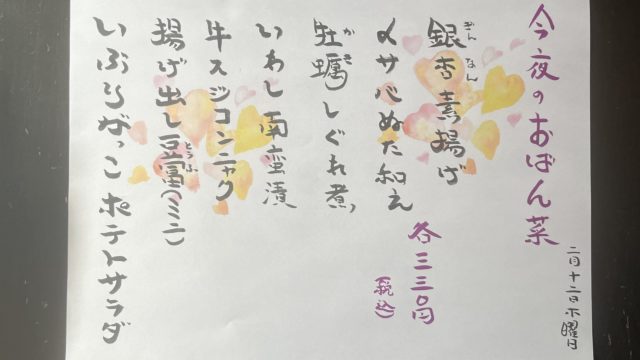 今夜のおばん菜
二月十二日木曜日
銀杏素揚げ
ぎんなん
〆サバぬた和え
牡蠣しぐれ煮
かき
いわし南蛮漬
牛スジコンニャク
揚げ出し豆富(ミニ)
とうふ
いぶりがっこポテトサラダ
各三三〇円
(税込)